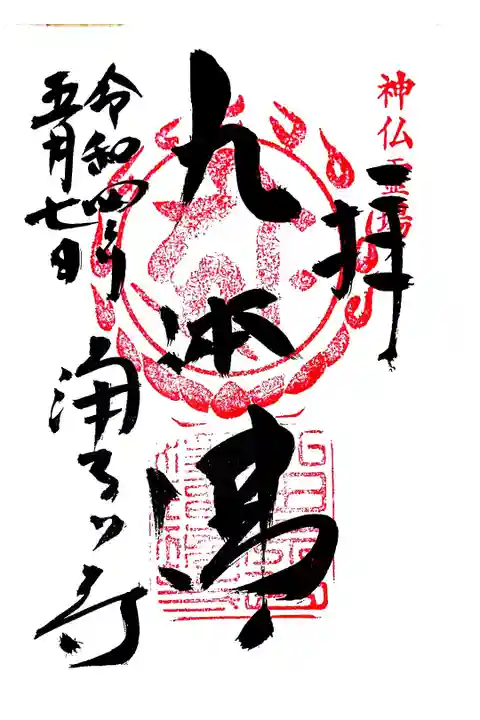 神仏霊場
拝
九体佛
令和四年
五月七日
浄るり寺